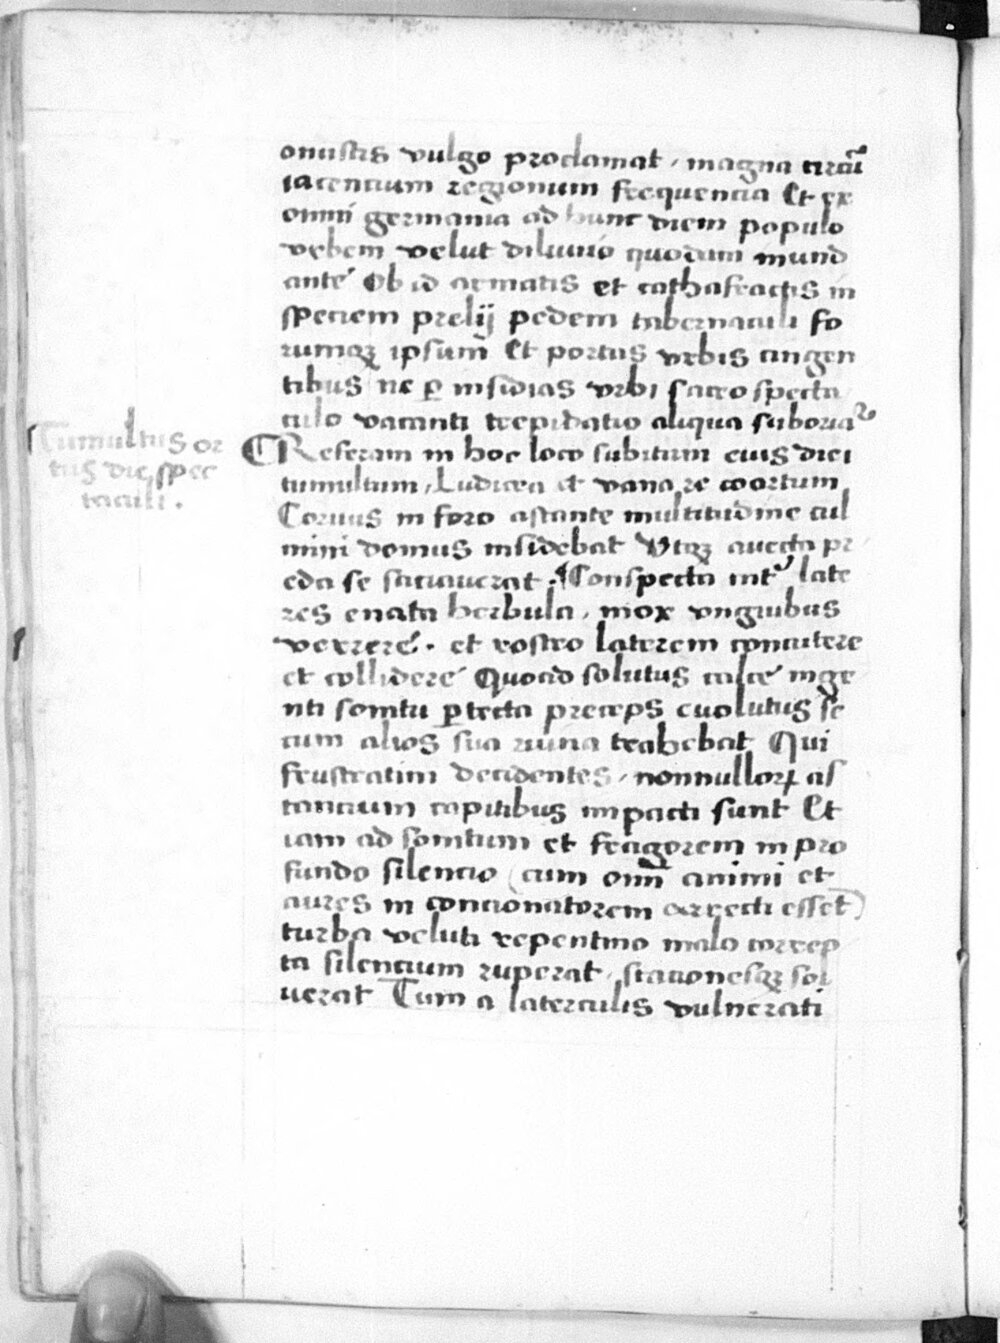 onustis vulgo proclamat, magna circū
iacentium regionum frequencia Et ex
omni germania ad hunc diem populo
vrbem velut diluuio quodam mund
ante Ob id armatis et cathafractis in
speciem prelij pedem tabernaculi fo
rumqꝫ ipsum Et portas vrbis cingen
tibus ne ꝑ insidias vrbi sacro specta
culo vacanti trepidatio aliqua suboriaꝰ
Tumultus or
tus die spec
taculi.
Referam in hoc loco subitum eius diei
tumultum, Ludicra et vana re coortum
Coruus in foro astante multitudine cul
mini domus insidebat Vtqꝫ auecta pr
eda se saciauerat. Conspecta intʳ late
res enata herbula, mox vnguibus
verrere. et rostro laterem concutere
et collidere Quoad solutus calce inge
nti sonitu ꝑ tecta preceps euolutus se
cum alios sua ruina trahebat Qui
frustratim decidentes, nonnulloꝝ as
tantium capitibus impacti sunt Et
iam ad sonitum et fragorem in pro
fundo silencio (cum omī animi et
aures in concionatorem arrecti essēt)
turba veluti repentino malo correp
ta silencium ruperat, stationesqꝫ sol
uerat Tum a laterculis vulnerati